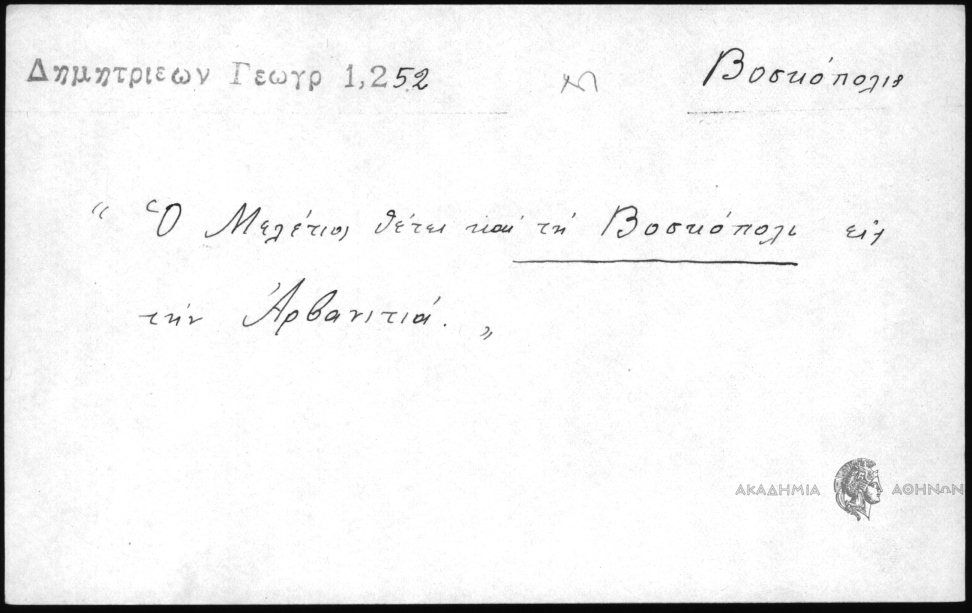 Δημητριεων Γεωγρ 1,252
Βοσκόπολις
“ Ὁ Μελέτιος θέτει καὶ τὴ Βοσκόπολι εἰς
τὴν Ἀρβανιτιά. „
ΑΚΑΔΗΜΙΑ ΑΘΗΝΩΝ